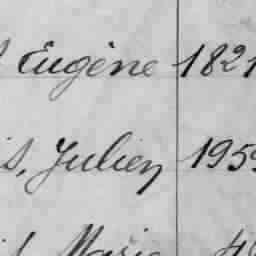 Eugène 1821
s, Julien 195
Marie 4